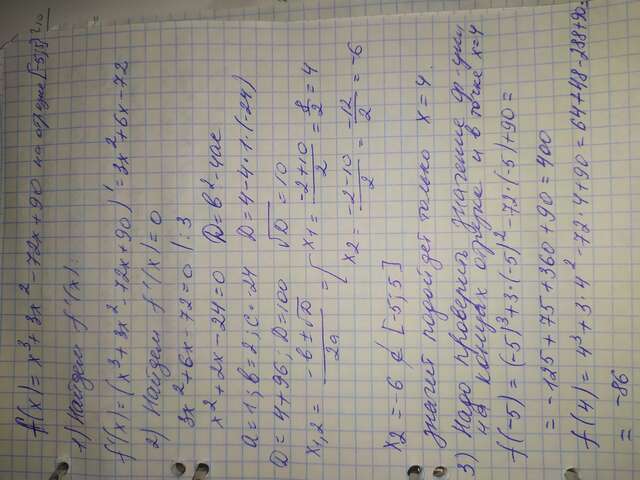 f(x) = x³ + 3x² - 72x + 90 на отрезке [-5;5]
1) Найдём f'(x):
f'(x) = (x³ + 3x² - 72x + 90)' = 3x² + 6x - 72
2) Найдем f'(x) = 0
3x² + 6x - 72 = 0 |: 3
x² + 2x - 24 = 0 D = b² - 4ac
a = 1; b = 2; c = -24 D = 4 - 4·1·(-24)
D = 4 + 96; D = 100 √D = 10
x1,2 = (-b ± √D)/2a = [ x1 = (-2+10)/2 = 8/2 = 4
x2 = (-2-10)/2 = -12/2 = -6
x2 = -6 ∉ [-5; 5]
значит подойдёт только x = 4.
3) Надо проверить значение ф-ции
на концах отрезка и в точке x = 4
f(-5) = (-5)³ + 3·(-5)² - 72·(-5) + 90 =
= -125 + 75 + 360 + 90 = 400
f(4) = 4³ + 3·4² - 72·4 + 90 = 64 + 48 - 288 + 90 =
= -86